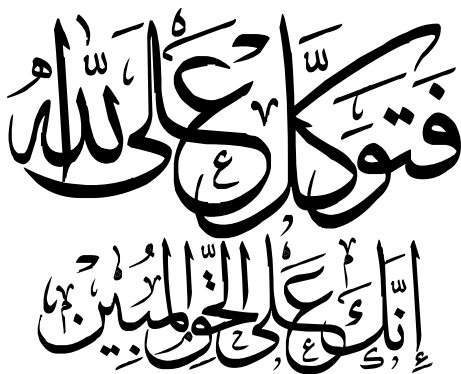 فَتَوَكَّلْ عَلَى اللّٰهِ
إِنَّكَ عَلَى الْحَقِّ الْمُبِينِ